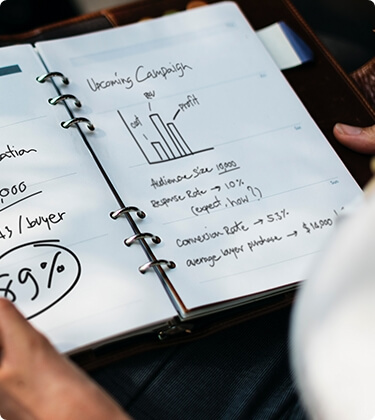 ation
,000
3/buyer
89%
Upcoming Campaign
rev
cost profit
Audience size 10,000
Response Rate → 10%
(expect. how?)
Conversion Rate → 5.3%
average buyer purchase → $10,000